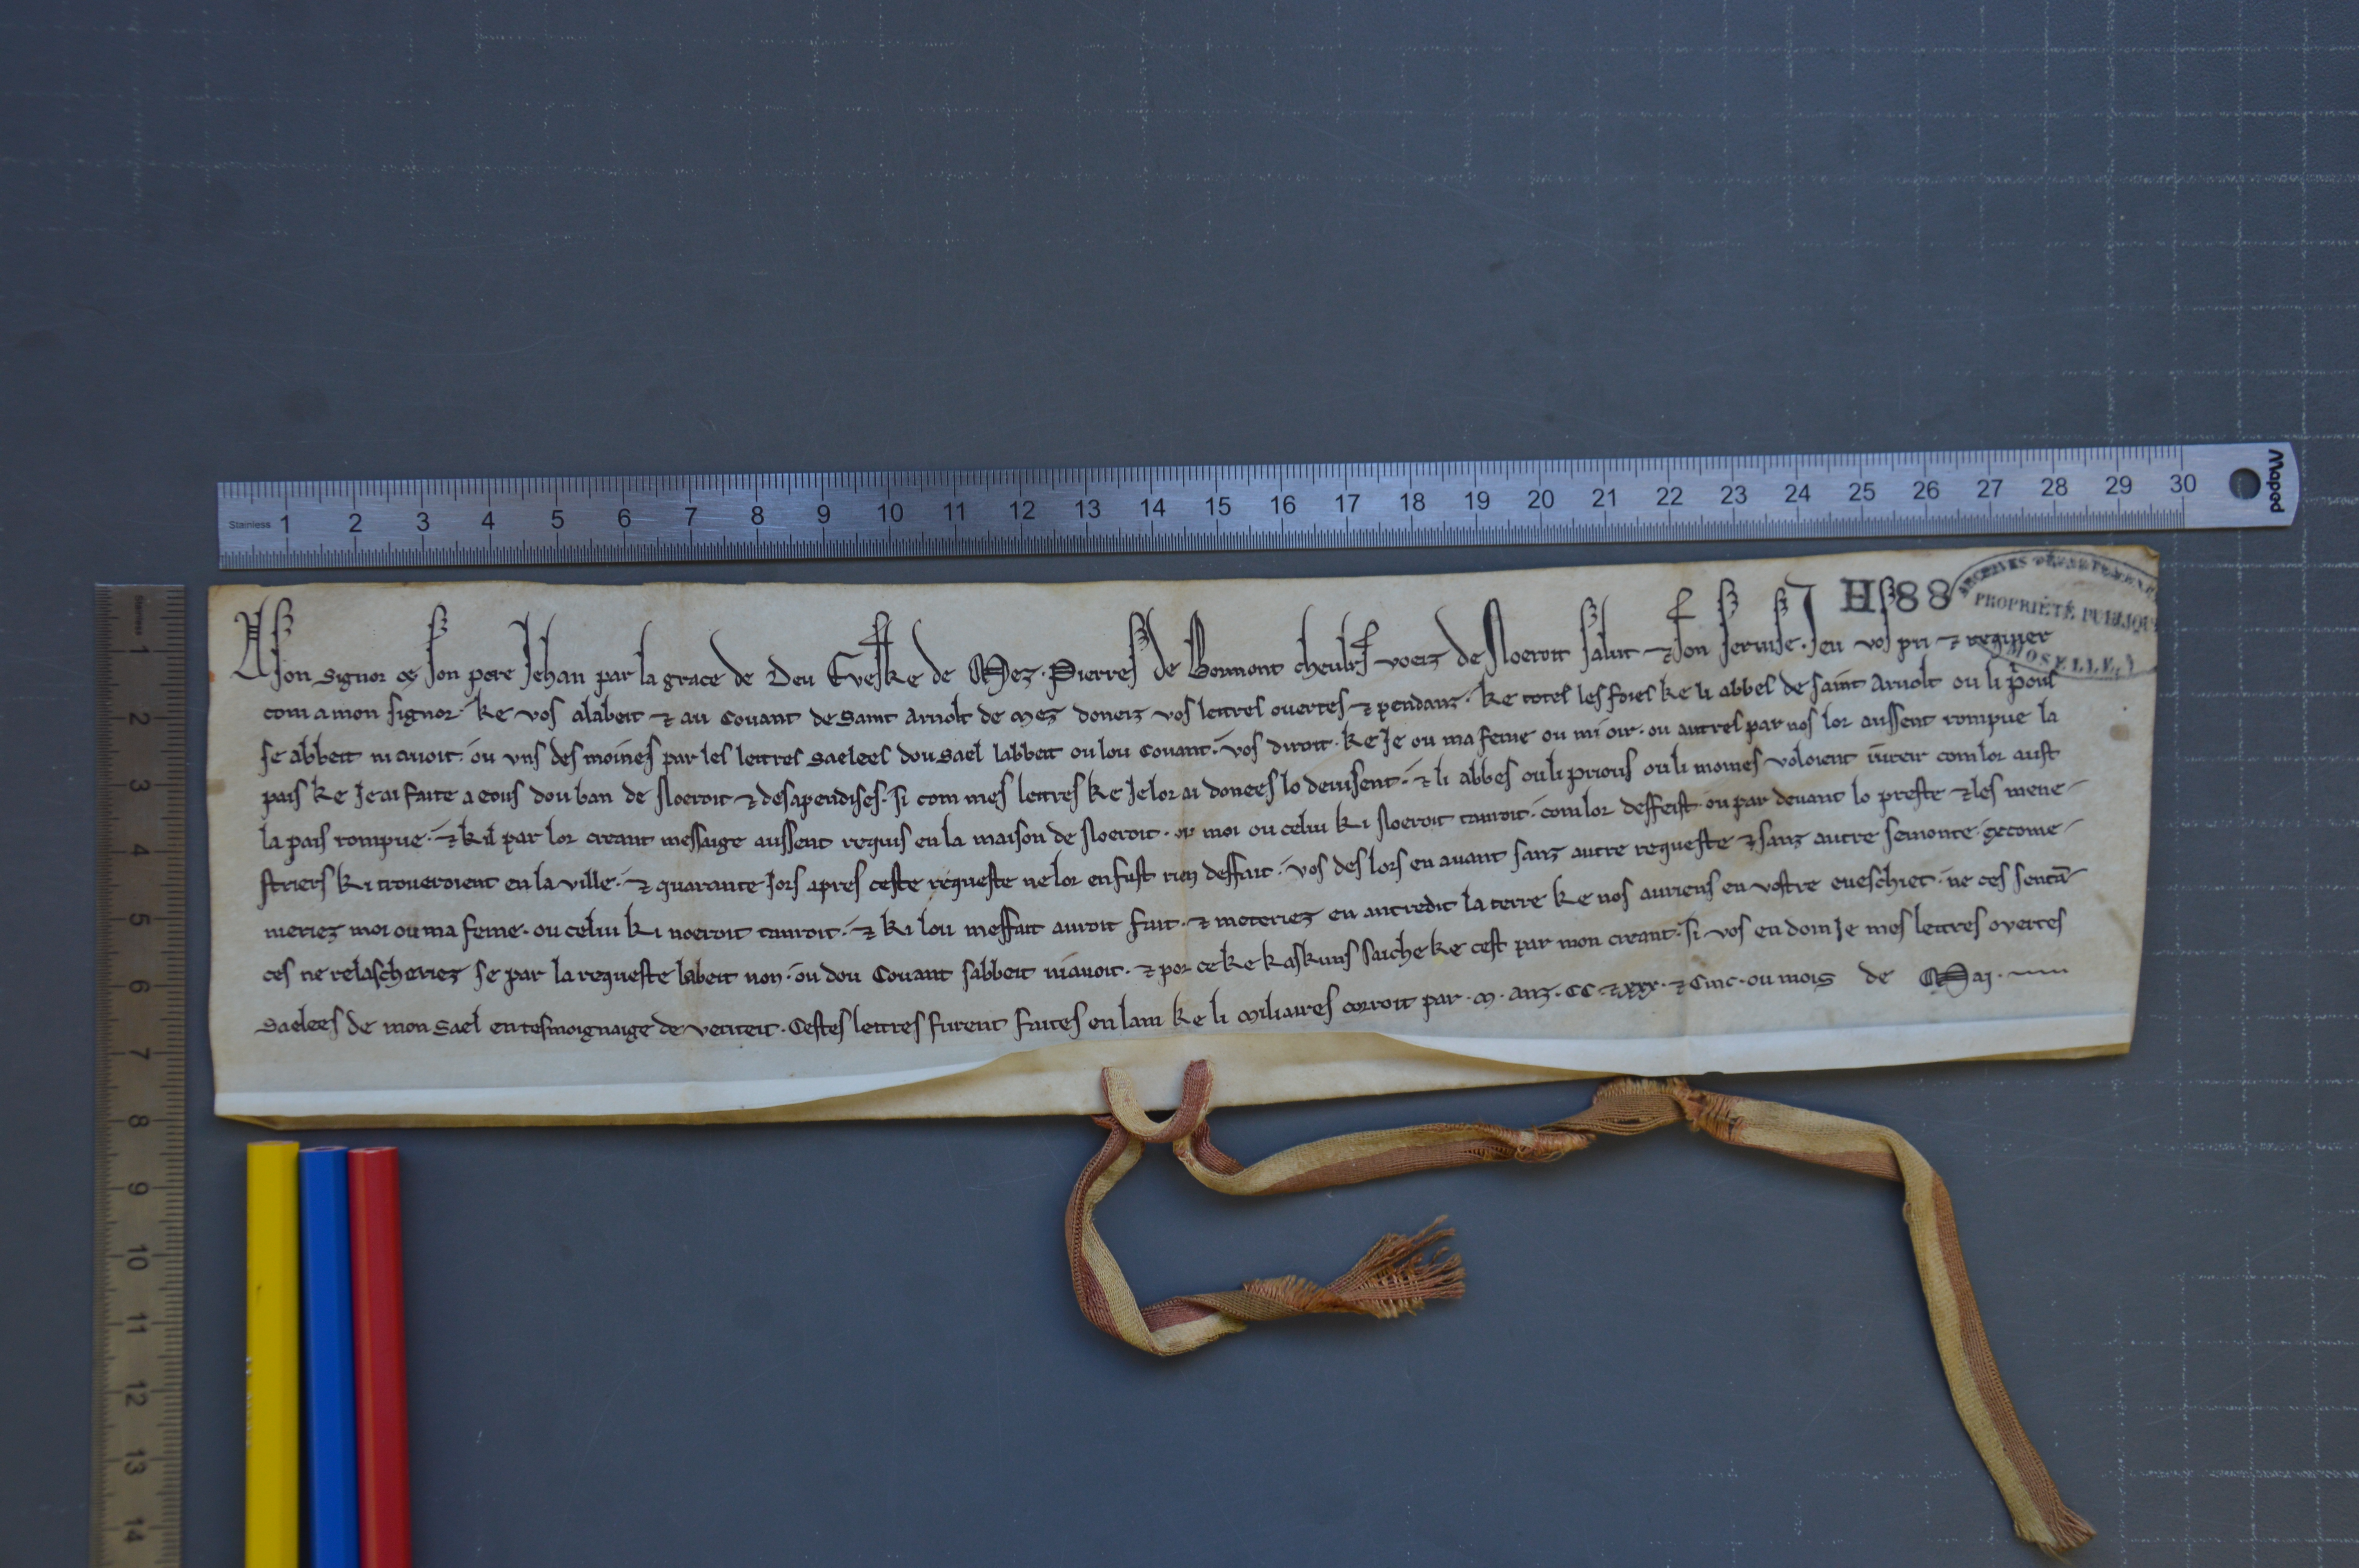 Stainless 1 2 3 4 5 6 7 8 9 10 11 12 13 14 15 16 17 18 19 20 21 22 23 24 25 26 27 28 29 30 Maped
Stainless 1 2 3 4 5 6 7 8 9 10 11 12 13 14
H 88
ARCHIVES DÉPARTEMEN
PROPRIÉTÉ PUBLIQU
MOSELLE
A son signor ⁊ son pere Jehan par la grace de Deu Eveske de Mez. Pierres de Bormont voeiz de Noeroit salut ⁊ son servise. Jeu vos pri ⁊ requier
com a mon signor. ke vos alabeit ⁊ au Couant de Saint Arnolt de Mez doneiz vos lettres ouertes ⁊ pendanz. ke totes les foies ke li abbes de saint Arnolt ou li p̄ous
se abbeit ni auoit. ou vns des moines par les lettres saelees dou sael labbeit ou lou Couant. vos diroit. ke Je ou ma feme ou mi oir. ou autres par nos lor aussent rompue la
pais ke Je ai faite a eous dou ban de Noeroit ⁊ des apendises. si com mes lettres ke Je lor ai donees lo deuisent. ⁊ li abbes ou li prious ou li moines voloient iureir com lor aust
la pais rompue. ⁊ kil par lor creant messaige aussent requis en la maison de Noeroit. moi ou celui ki Noeroit tanroit. com lor deffeist. ou par deuant lo prestre ⁊ les mene
striers ki troueroient en la ville. ⁊ quarante Jors apres ceste requeste ne lor en fust rien deffait. vos des lors en auant sanz autre requeste ⁊ sanz autre semonte. escome
meriez moi ou ma feme. ou celui ki noeroit tanroit. ⁊ ki lou meffait auroit fait. ⁊ meteriez en antredit la terre ke nos auriens en vostre eueschiet. ne ces sentā
ces ne relascheriez se par la requeste labeit non. ou dou Couant sabbeit ni auoit. ⁊ por ce ke kaskuns saiche ke cest par mon creant. si vos en doin Je mes lettres overtes
saelees de mon sael en tesmoignaige de veriteit. Cestes lettres furent faites en lan ke li miliaires corroit par .m. anz. CC ⁊ xxx. ⁊ Cinc. ou mois de Maj.